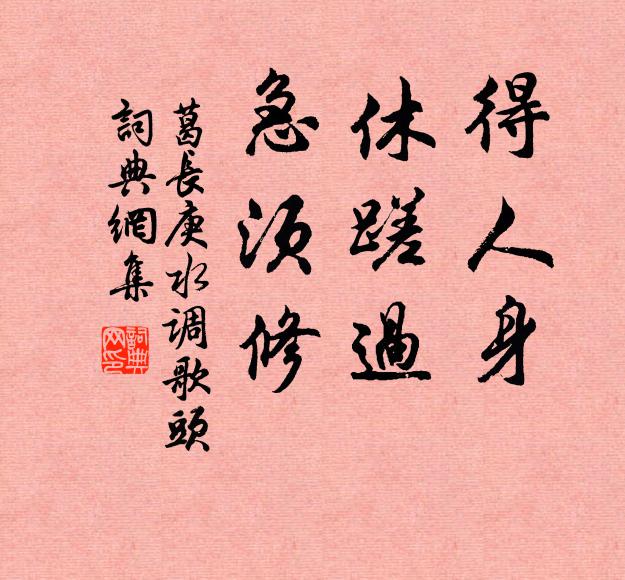 得人身
休蹉過
急須修
葛長庚水调歌頭
詞典網集
詞典網印